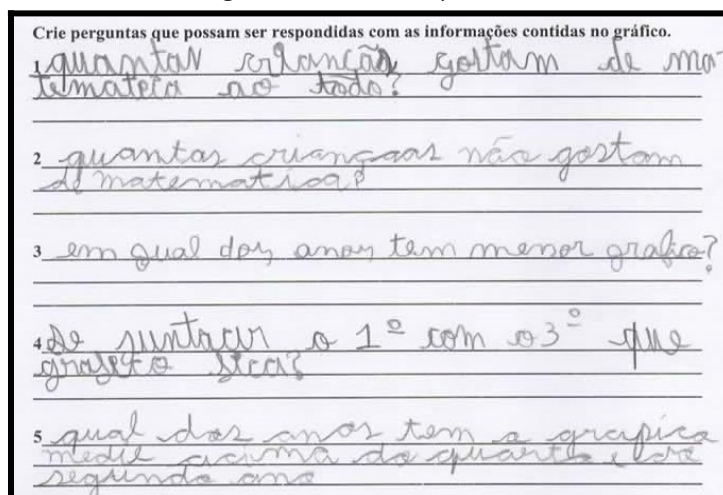 Crie perguntas que possam ser respondidas com as informações contidas no gráfico.
1 quantas crianção gostam de ma-
temateca ao todo?
2 quantas criançaas não gostam
de matematica?
3 em qual dos anos tem menor grafico?
4 Se juntarar o 1º com o 3º que
fica?
5 qual dos anos tem a grapica
medie acima do quarto e
segundo ano